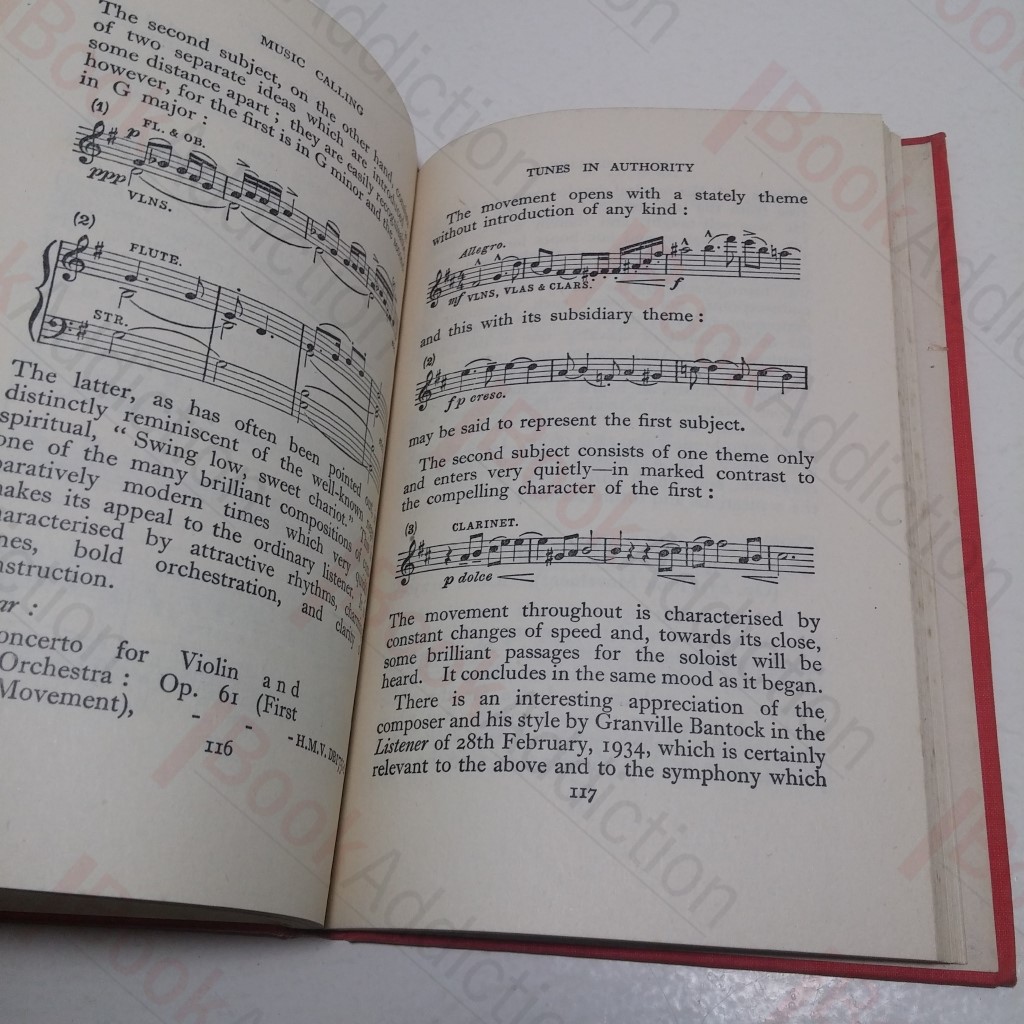 MUSIC CALLING
The second subject, on the other hand,
of two separate ideas which are introduced
some distance apart ; they are easily
however, for the first is in G minor and the
in G major :
(1)
FL. & OB.
p
ppp
VLNS.
(2)
FLUTE.
p
STR.
p
The latter, as has often been pointed out,
distinctly reminiscent of the well-known
spiritual, “ Swing low, sweet chariot.”
one of the many brilliant compositions of
paratively modern times which very
makes its appeal to the ordinary listener.
characterised by attractive rhythms,
bold orchestration, and clarity
construction.
Concerto for Violin and
Orchestra : Op. 61 (First
Movement), - - - H.M.V.
116
TUNES IN AUTHORITY
The movement opens with a stately theme
without introduction of any kind :
Allegro.
mf VLNS, VLAS & CLARS.
f
and this with its subsidiary theme :
(2)
fp cresc.
may be said to represent the first subject.
The second subject consists of one theme only
and enters very quietly—in marked contrast to
the compelling character of the first :
(3)
CLARINET.
p dolce
The movement throughout is characterised by
constant changes of speed and, towards its close,
some brilliant passages for the soloist will be
heard. It concludes in the same mood as it began.
There is an interesting appreciation of the
composer and his style by Granville Bantock in the
Listener of 28th February, 1934, which is certainly
relevant to the above and to the symphony which
117
BookAddiction